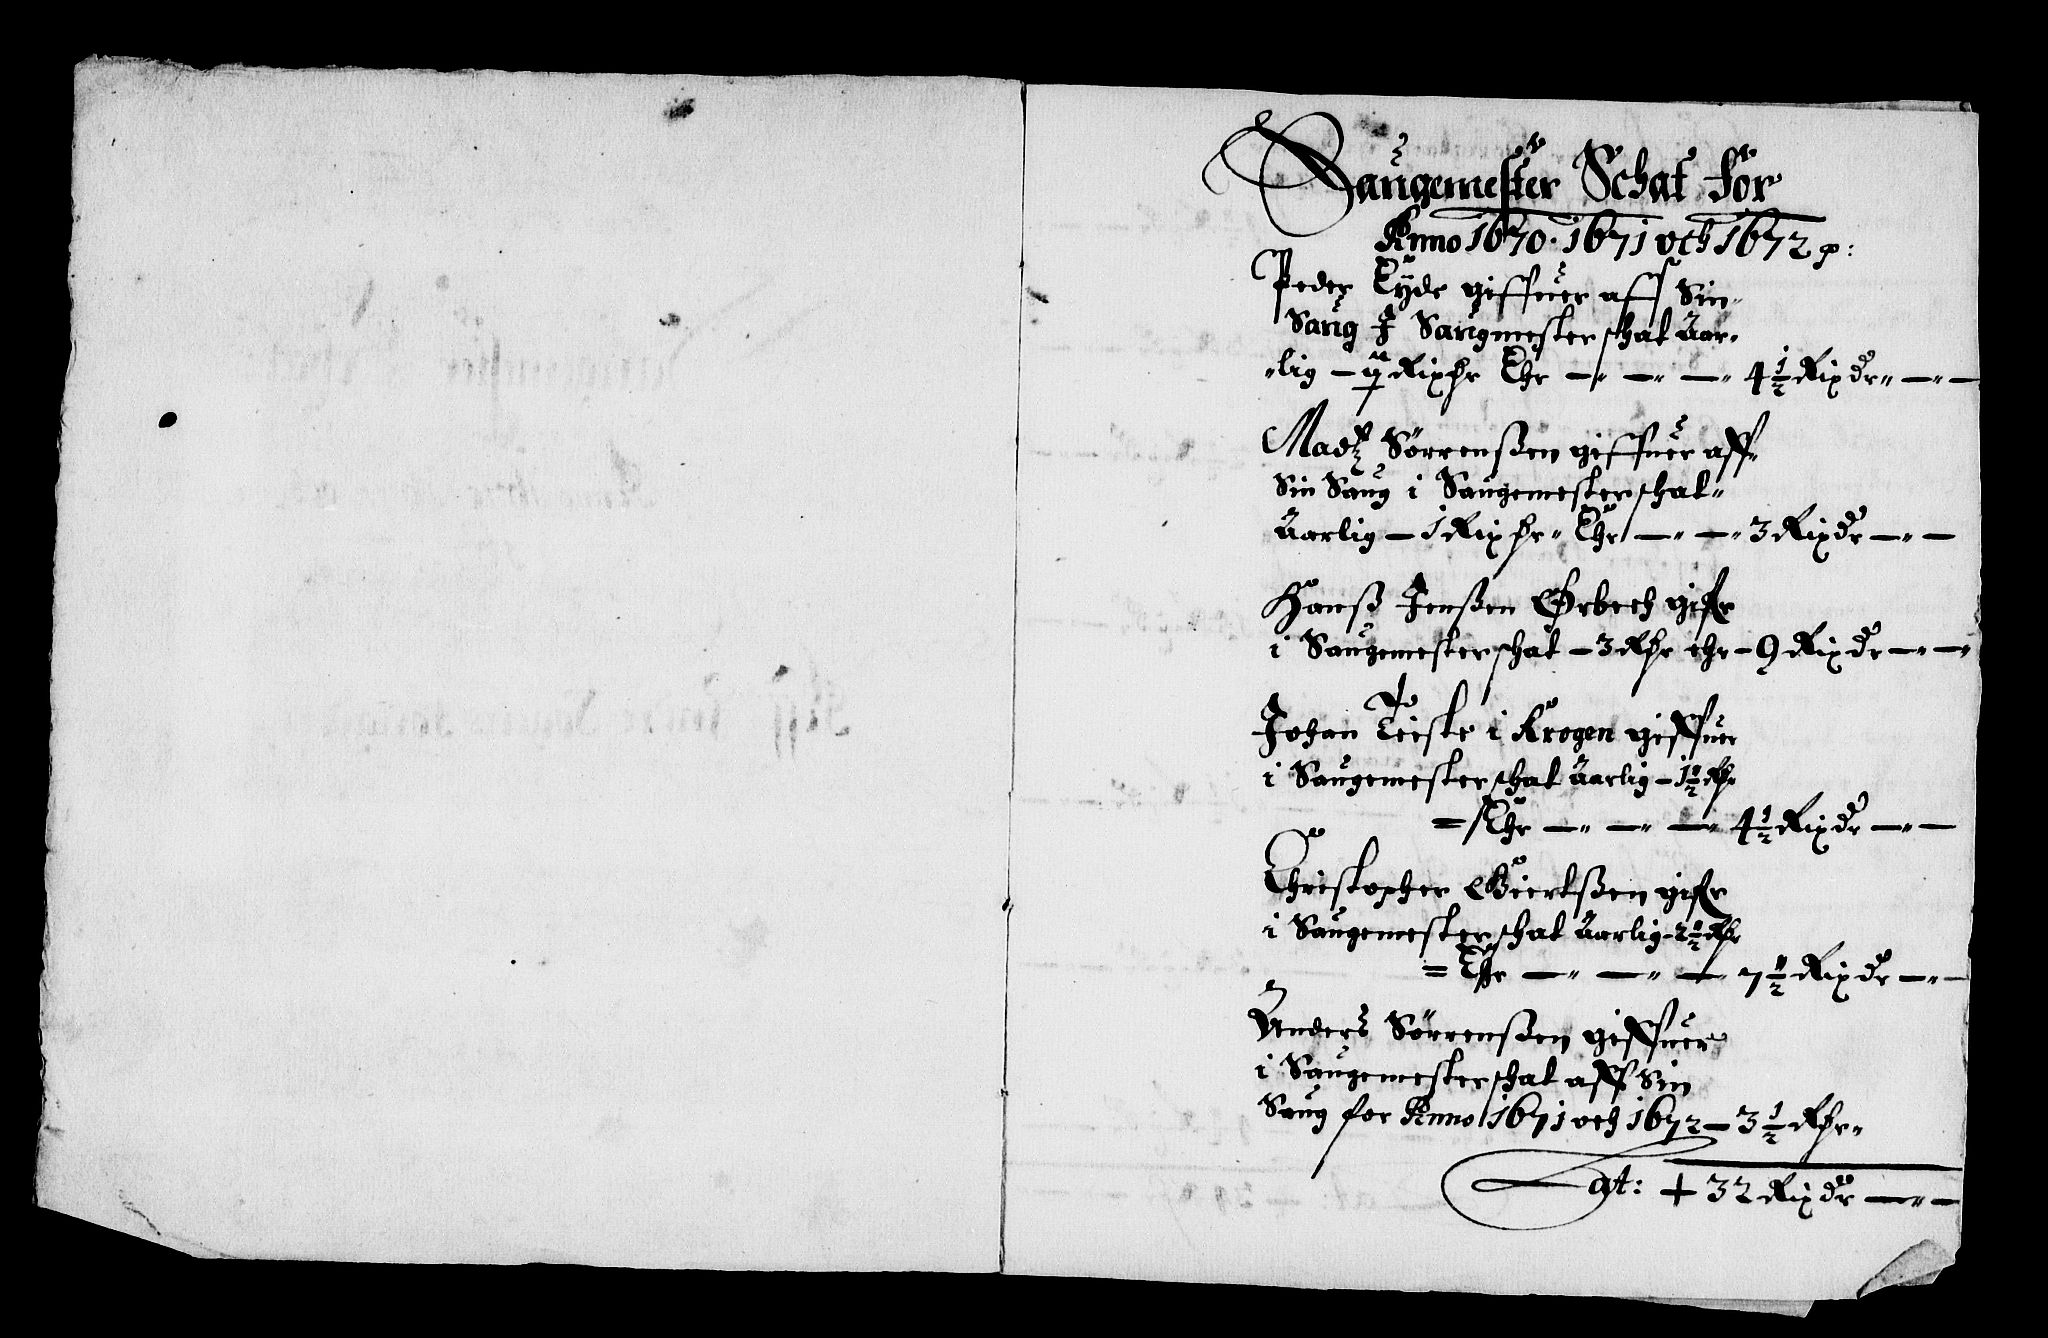 Saugemester Schat for
Anno 1670. 1671 och 1672 p:
Peder Tyde giffuer aff Sin
Saug J Saugmester schat Aar-
lig — Rixdr Ehr — 4 1/2 Rixdr — —
Madtz Sørrenßen giffuer aff
Sin Saug i Saugemester schat
Aarlig — 1 Rixdr Ehr — — 3 Rixdr — —
Hanß Jenßen Ørbech gifr
i Saugemester schat — 3 Rdr ehr — 9 Rixdr — —
Johan Teiste i Krogen giffuer
i Saugemester schat Aarlig — 1 1/2 Rdr
= Ehr — — — 4 1/2 Rixdr — —
Christopher Giertßen gifr
i Saugemester schat Aarlig — 2 1/2 Rdr
= Ehr — — — 7 1/2 Rixdr — —
Anders Sørrenßen giffuer
i Saugemester schat aff Sin
Saug for Anno 1671 och 1672 — 3 1/2 Rdr
Lat: + 32 Rixdr — —